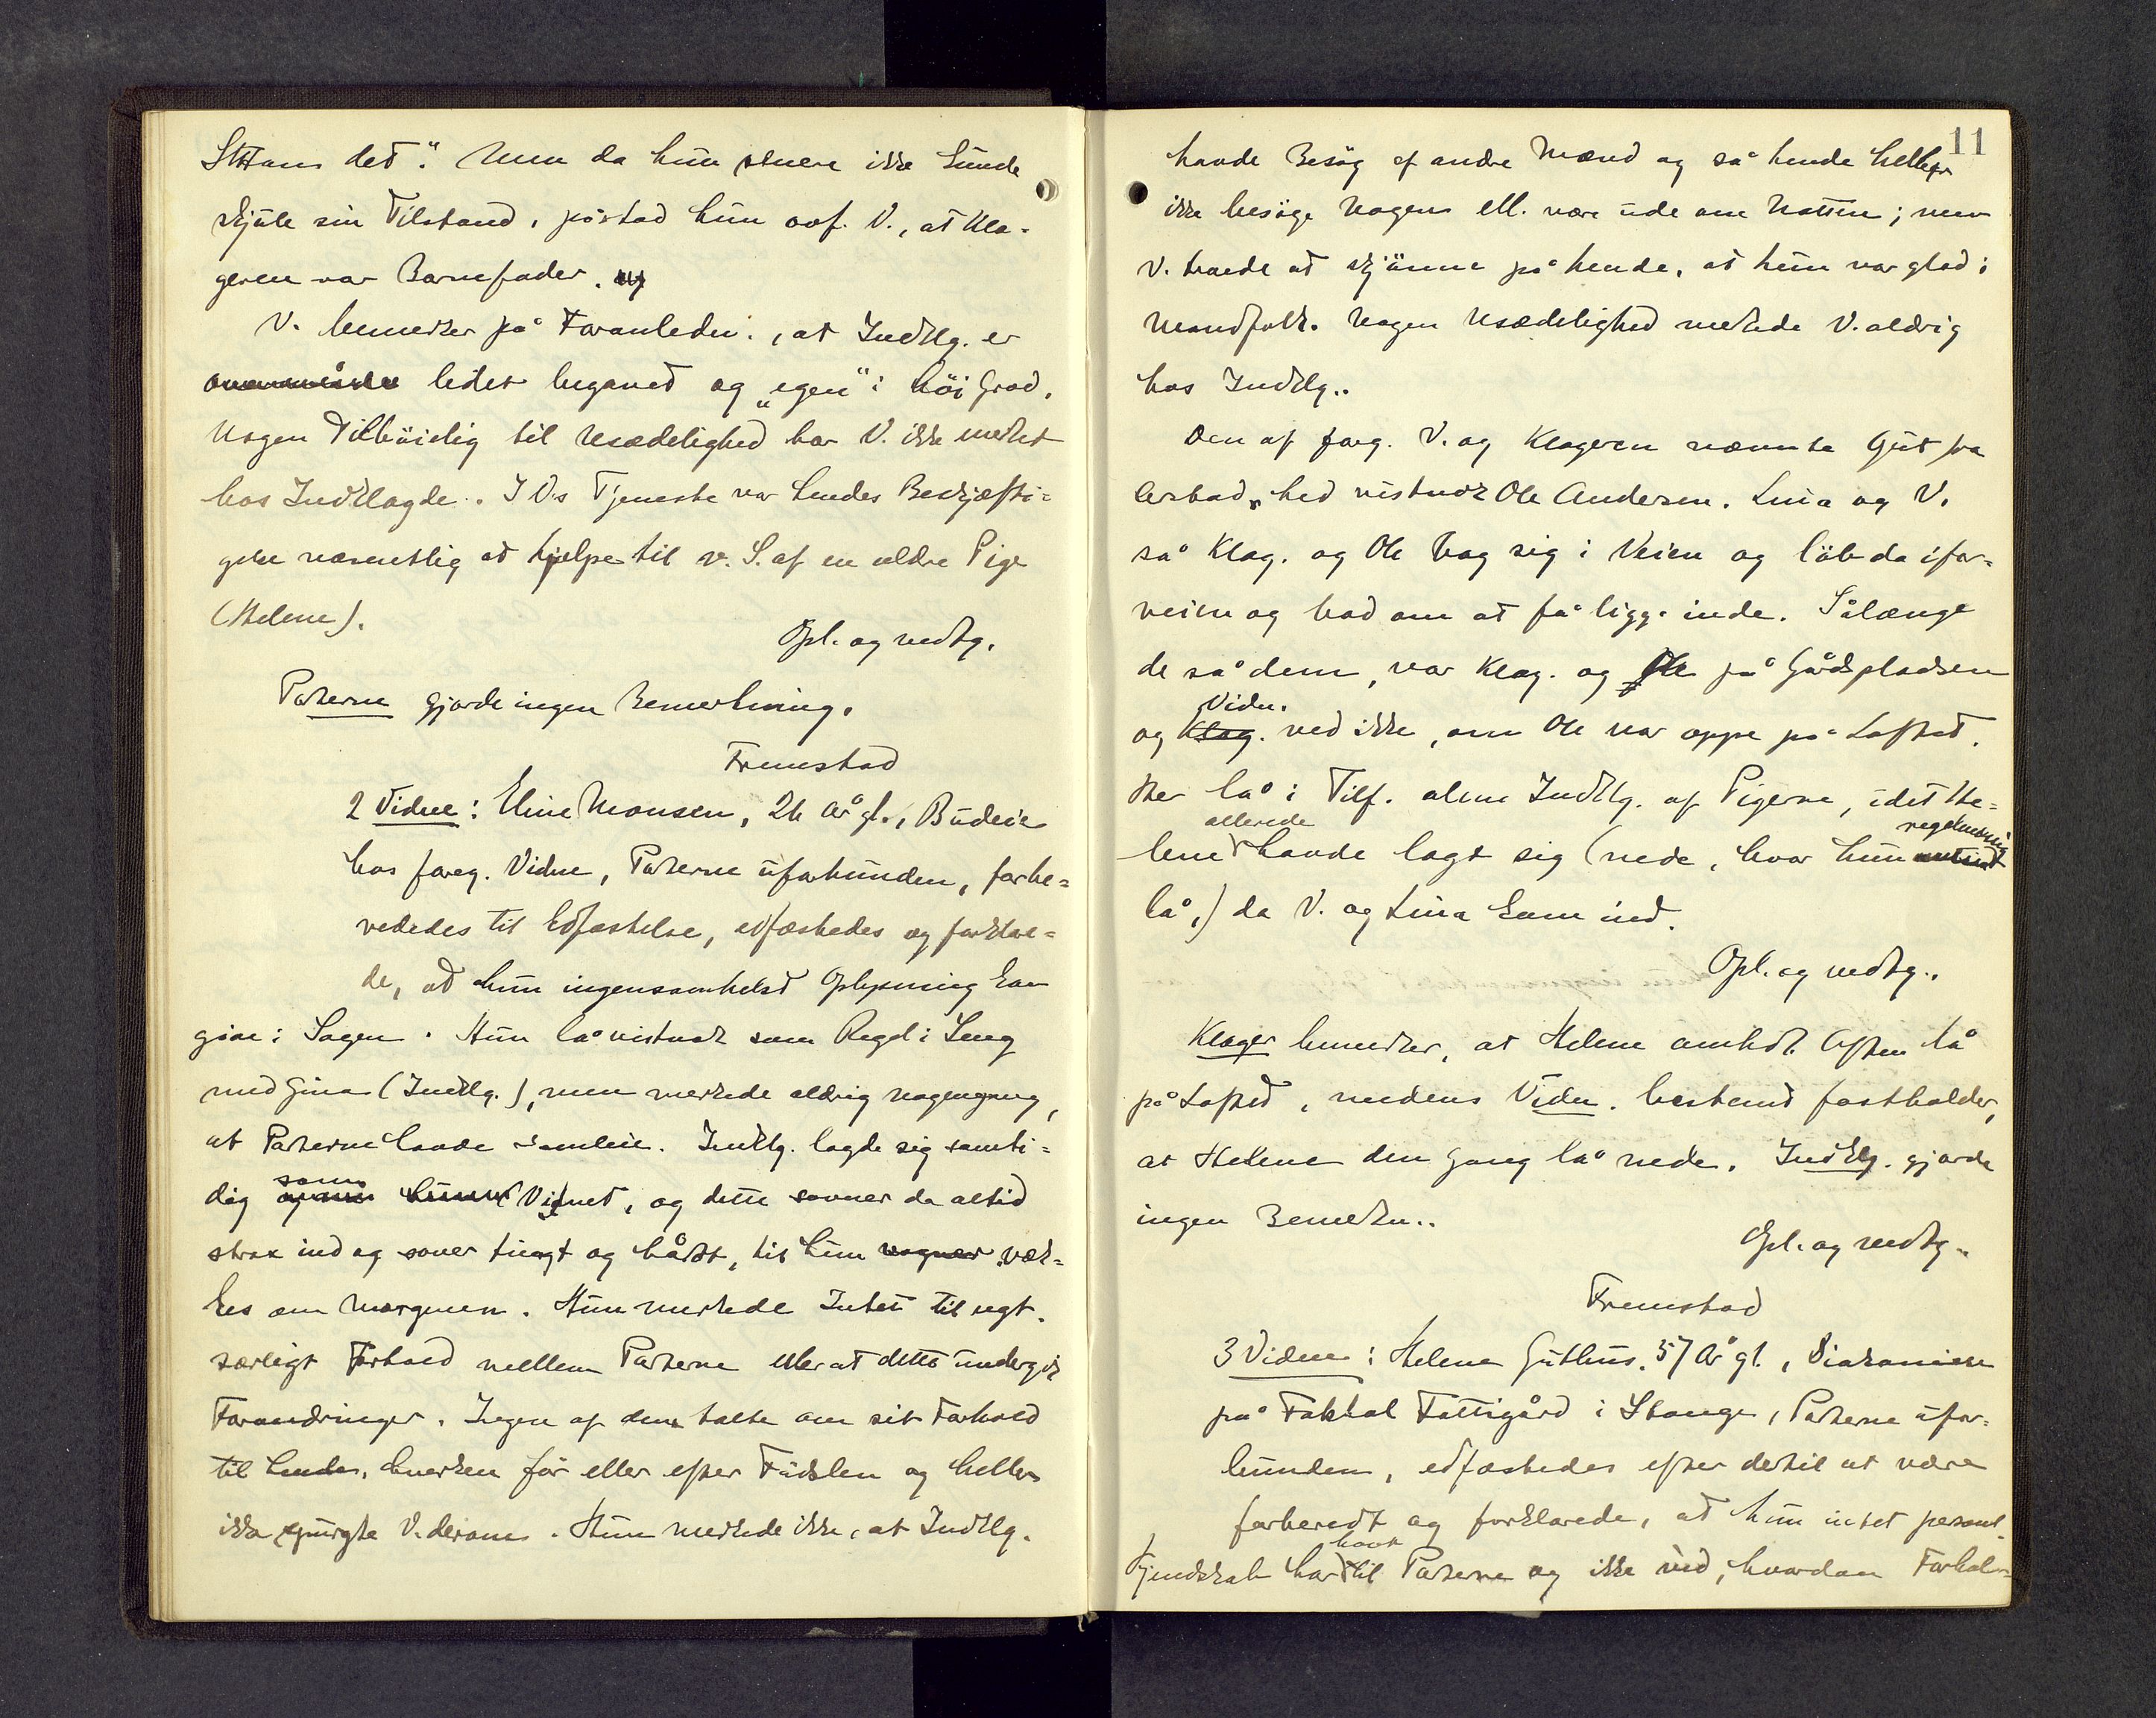 StHans det." Men da hun senere ikke kunde
skjule sin Tilstand, påstod hun ovf. V., at Kla-
geren var Barnefader.
V. bemerker på Foranledn., at Indklg. er
lidet begavet og "egen" i höi Grad.
Nogen Tilböielig til Usædelighed har V. ikke merket
hos Indklagde. I V.s Tjeneste var hendes Beskjæfti-
gelse væsentlig at hjelpe til v. S. af en ældre Pige
(Helene).
Opl. og vedtg.
Parterne gjorde ingen Bemerkning.
Fremstod
2 Vidne: Eline Monsen, 26 år gl., Budeie
hos foreg. Vidne, Parterne uforbunden, forbe-
rededes til Edfæstelse, edfæstedes og forklare-
de, at hun ingensomhelst Oplysning kan
give i Sagen. Hun lå vistnok som Regel i Seng
med Gina (Indklg.), men merkede aldrig nogengang,
at Parterne havde Samleie. Indklg. lagde sig samti-
dig som Vidnet, og dette sovner da altid
strax ind og sover tungt og hårdt, til hun vogner væk-
kes om Morgenen. Hun merkede Intet til ngt.
særligt Forhold mellem Parterne eller at dette undergik
Forandringer. Ingen af dem talte om sit Forhold
til hende, hverken för eller efter Födslen og heller
ikke spurgte V. derom. Hun merkede ikke, at Indklg.
11
havde Besög af andre Mænd og så hende heller
ikke besöge Nogen ell. være ude om Natten; men
V. troede at skjönne på hende, at hun var glad i
Mandfolk. Nogen Usædelighed merkede V. aldrig
hos Indklg..
Den af forg. V. og Klageren nævnte Gut fra
hed vistnok Ole Andersen. Lina og V.
så Klag. og Ole bag sig i Veien og löb da ifor-
veien og bad om at få ligge inde. Sålænge
de så dem, var Klag. og Ole på Gårdspladsen
Vidn.
og Klag. ved ikke, om Ole var oppe på Loftet.
Her lå i Tilf. alene Indklg. af Pigerne, idet He-
allerede regelmæssig
lene havde lagt sig (nede, hvor hun
lå,) da V. og Lina kom ind.
Opl. og vedtg..
Klager bemerker, at Helene omhdl. Aften lå
på Loftet, medens Vidn. bestemt fastholder,
at Helene den Gang lå nede. Indklg. gjorde
ingen Bemerkn..
Opl. og vedtg.
Fremstod
3 Vidne: Helene Guthus, 57 År gl., Diakonisse
på Fattigård i Stange, Parterne ufor-
bunden, edfæstedes efter dertil at være
forberedt og forklarede, at hun intet personl.
havt
Kjendskab har til Parterne og ikke ved, hvordan Forhol-